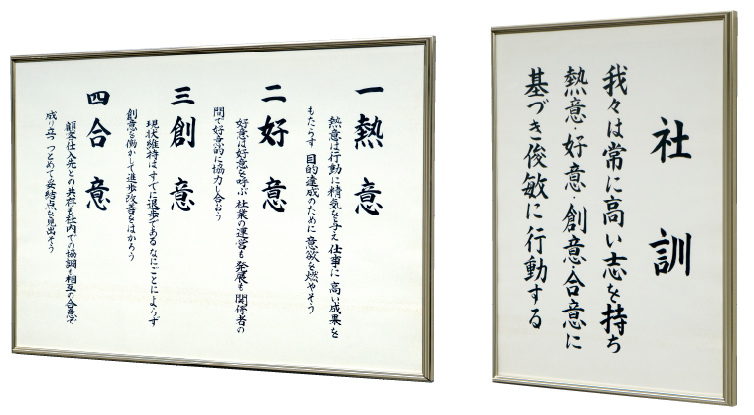 社訓
我々は常に高い志を持ち
熱意・好意・創意・合意に
基づき俊敏に行動する
一 熱意
熱意は行動に精気を与え仕事に高い成果を
もたらす 目的達成のために意欲を燃やそう
二 好意
好意は好意を呼ぶ 社業の運営も発展も関係者の
間で好意的に協力し合おう
三 創意
現状維持はすでに退歩である なにごとによらず
創意を働かして進歩改善をはかろう
四 合意
顧客仕入先との共存も社内での協調も相互の合意で
成り立つ つとめて妥結点を見出そう